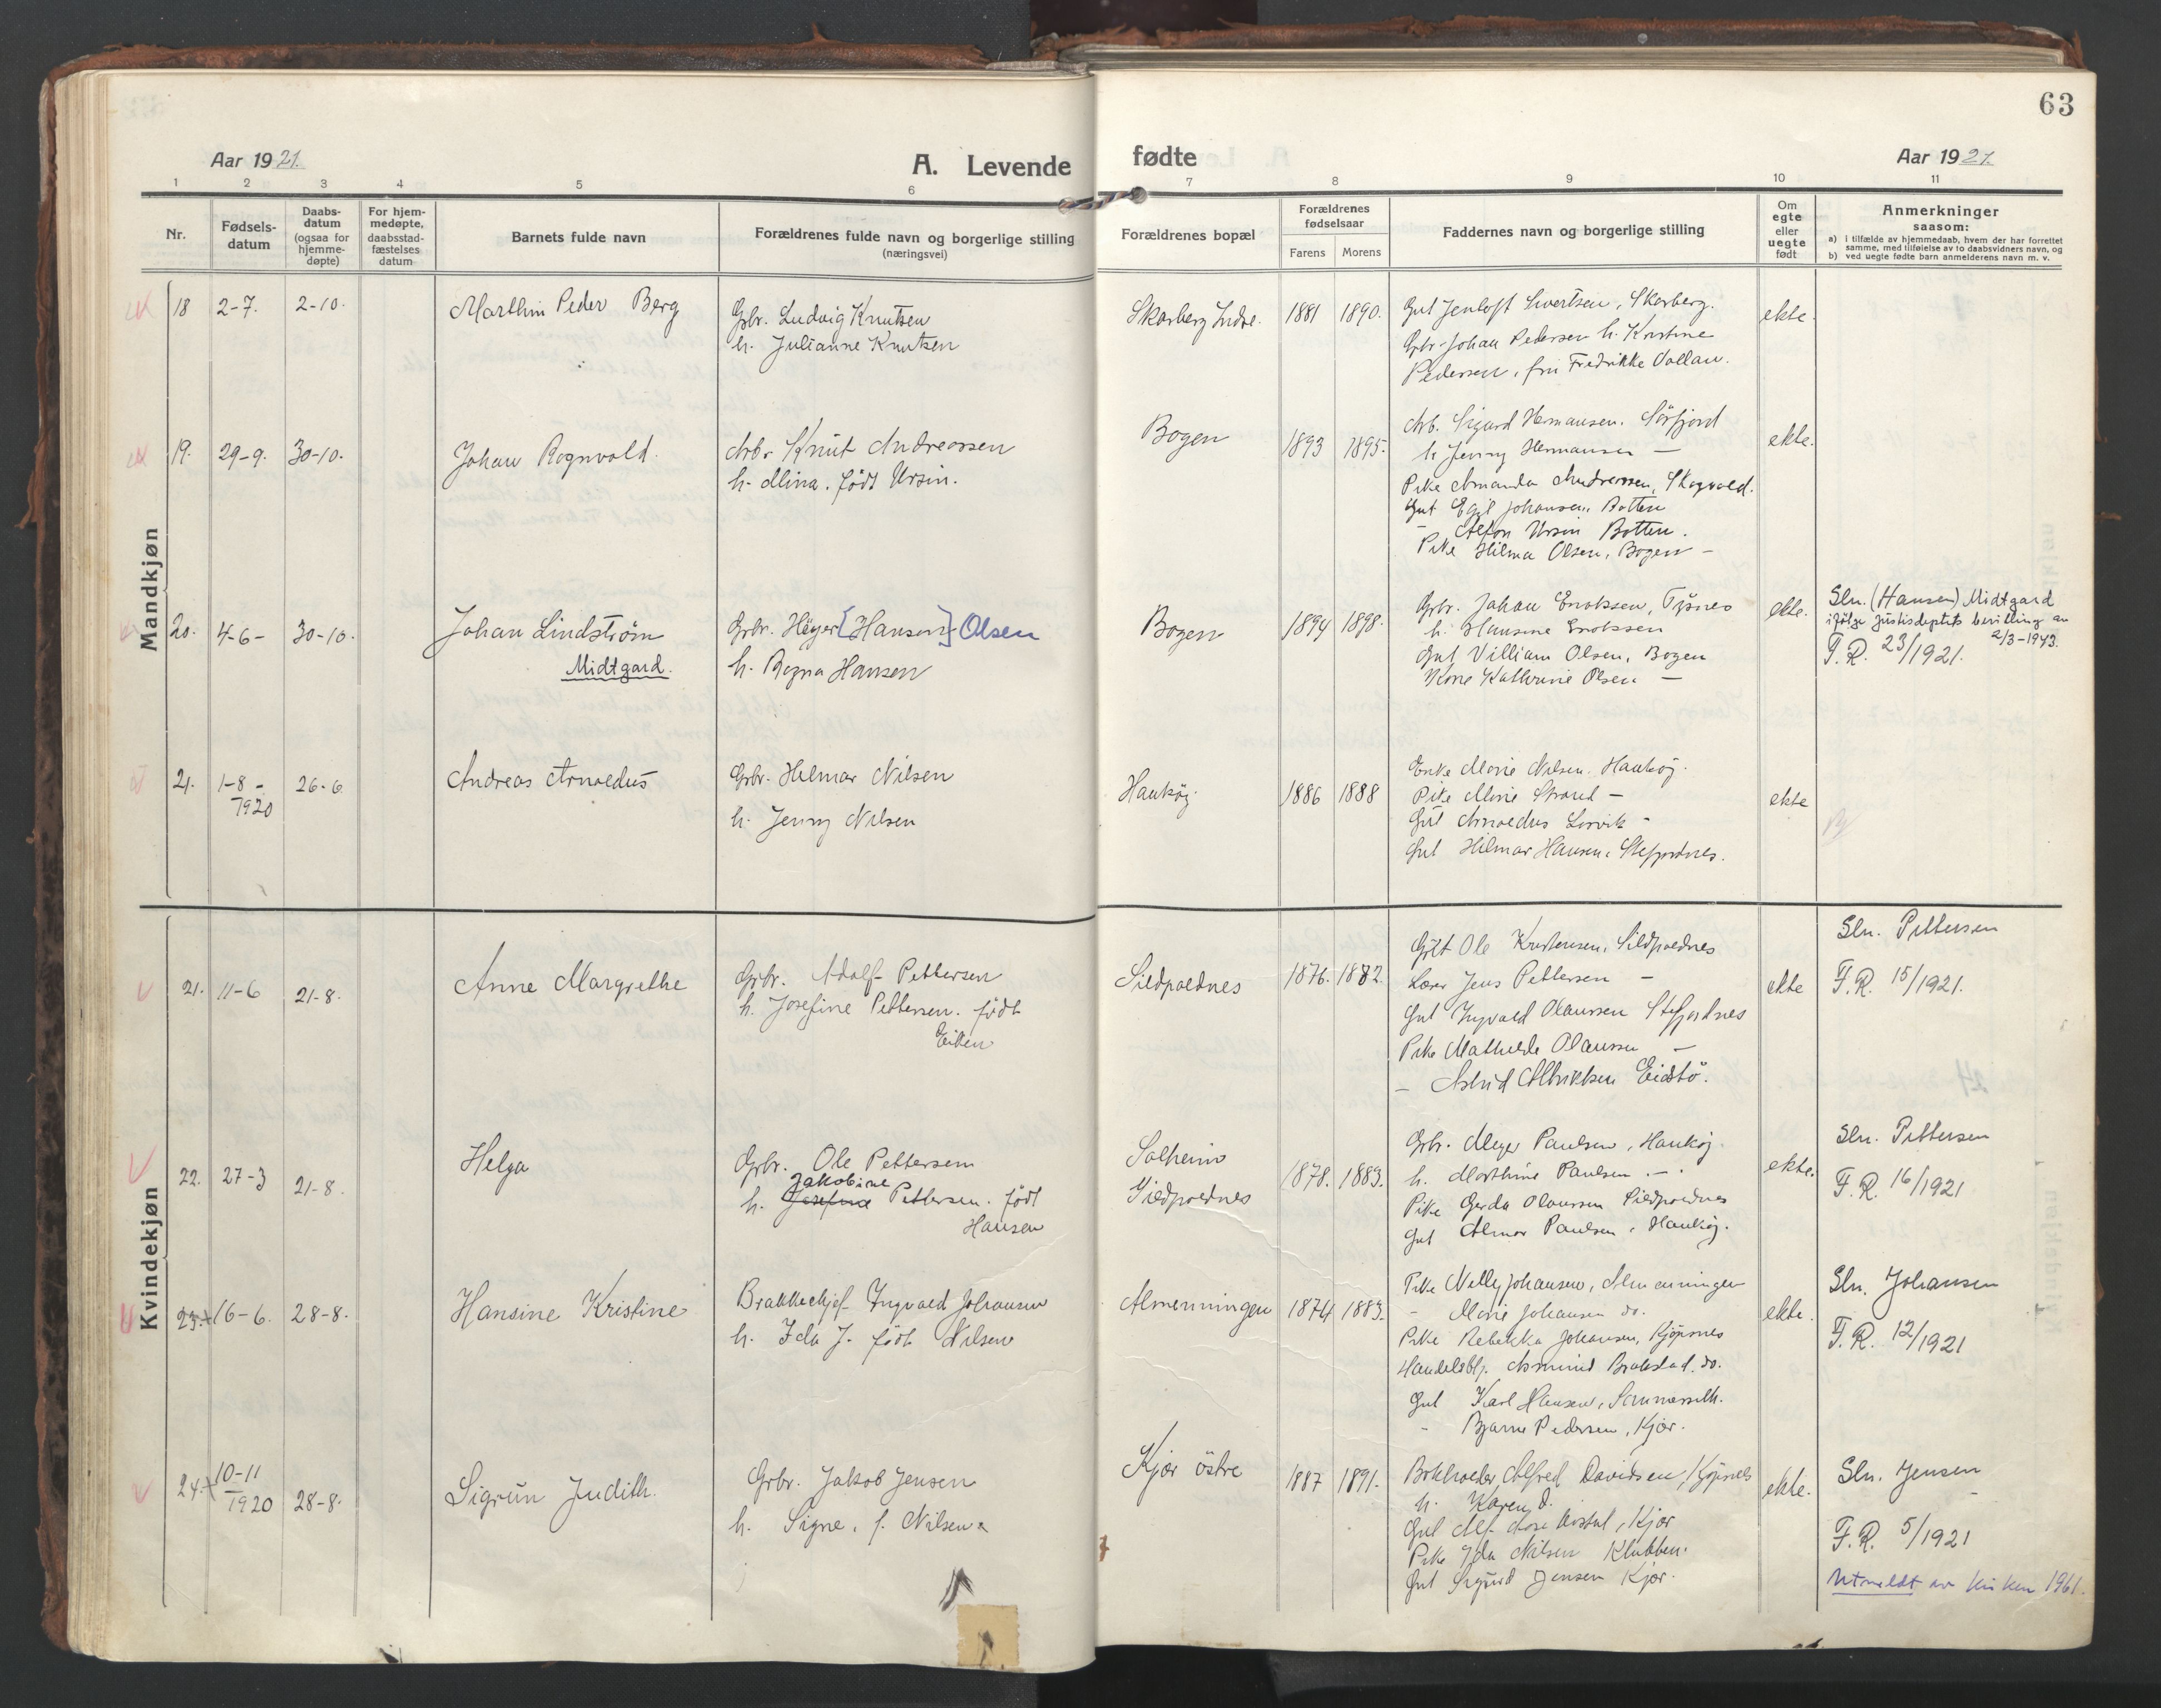 63
Aar 1921.
A. Levende fødte
Aar 1921.
1 2 3 4 5 6 7 8 9 10 11
Nr.
Fødsels-
datum
Daabs-
datum
(ogsaa for
hjemme-
døpte)
For hjem-
medøpte,
daabsstad-
fæstelses
datum
Barnets fulde navn
Forældrenes fulde navn og borgerlige stilling
(næringsvei)
Forældrenes bopæl
Forældrenes
fødselsaar
Farens Morens
Faddernes navn og borgerlige stilling
Om
egte
eller
uegte
født
Anmerkninger
saasom:
a) i tilfælde av hjemmedaab, hvem der har forrettet
samme, med tilføielse av to daabsvidners navn, og
b) ved uegte fødte barn anmelderens navn m. v.
Mandkjøn
18 2-7. 2-10. Marthin Peder Berg
Gbr. Ludvig Knutsen
h. Julianne Knutsen
Skarberg Indre. 1881 1890.
Gut Jentoft Sivertsen, Skarberg.
Gbr. Johan Pedersen h. Kristine
Pedersen, fru Fredrikke Vollan.
ekte.
19. 29-9. 30-10. Johan Rognvald.
Arb. Knut Andreassen
h. Mina. født Ursin.
Bogen 1893 1895.
Arb. Sigurd Hermansen. Sörfjord
h. Jenny Hermansen —
Pike Amanda Andreassen, Skogvold.
Gut Egil Johansen, Botten
- Alfon Ursin Botten.
Pike Hilma Olsen, Bogen —
ekte.
20. 4-6- 30-10. Johan Lindström
Midtgard.
Grbr. Höyer [Hansen] Olsen
h. Ragna Hansen
Bogen 1894 1898.
Grbr. Johan Enoksen, Tysnes
h. Hansine Enoksen
Gut Villiam Olsen, Bogen
Kone Kathrine Olsen —
ekte.
Sln. (Hansen) Midtgard
ifölge Justisdeptets bevilling av
2/3-1943.
F. R. 23/1921.
21. 1-8- 26-6 Andreas Arnoldus
1920
Grbr. Helmar Nilsen
h. Jenny Nilsen
Hauköy. 1886 1888
Enke Marie Nilsen. Hauköy.
Pike Marie Strand —
Gut Arnoldus Lorvik -
Gut Hilmar Hansen, Stefjordnes.
ekte
Kvindekjøn
21. 11-6 21-8. Anne Margrethe
Grbr. Adolf Pettersen
h. Josefine Pettersen. født
Eiken
Sildpoldnes 1876. 1882.
Gift Ole Kristensen, Sildpoldnes
Lærer Jens Pettersen —
Gut Ingvald Olaussen Stefjordnes
Pike Mathilde Olaussen —
— Astrid Albriktsen Eidstö.
ekte
Sln. Pettersen
F. R. 15/1921.
22. 27-3 21-8. Helga
Grbr. Ole Pettersen
Jakobine
h. Josefine Pettersen. født
Hansen
Solheim
Sildpoldnes
1878. 1883.
Grbr. Meyer Paulsen, Hauköy.
h. Marthine Paulsen. — .
Pike Gerda Olaussen Sildpoldnes
Gut Almar Paulsen, Hauköy.
ekte.
Sln. Pettersen
F. R. 16/1921
23. 16-6. 28-8. Hansine Kristine
Brakkechef Ingvald Johansen
h. Ida J. født Nilsen
Almenningen 1874 1883.
Pike Nelly Johansen, Almenningen
- Marie Johansen do.
Pike Rebekka Johansen, Kjöpsnes
Handelsbtj. Asmund Brokstad. do.
Gut Karl Hansen, Sommerseth.
- Bjarne Pedersen, Kjær.
ekte.
Sln. Johansen
F. R. 12/1921
24. 10-11
1920 28-8. Sigrun Judith.
Grbr. Jakob Jensen
h. Signe, f. Nilsen.
Kjær östre 1887 1891.
Alfred Davidsen, Kjöpsnes
h. Karen D.
Gut Alf , Kjær
Pike Ida Nilsen Klubben.
Gut Sigurd Jensen Kjær.
ekte.
Sln. Jensen
F. R. 5/1921
Utmeldt av kirken 1961.